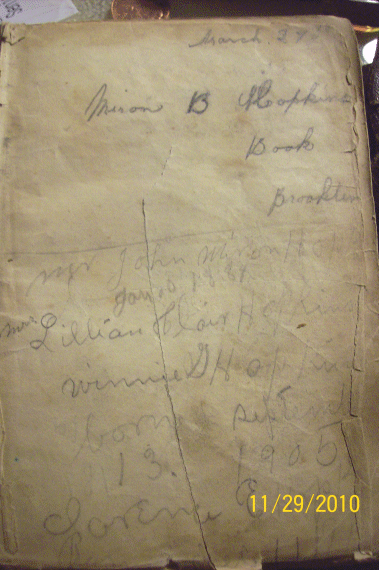 March 27
Miron B Hopkins
Book
Brookten
Mr John Miron Hop
Jan 10 1881
Mrs Lillian Blair Hopkin
Winnie G Hopkin
born septemb
13. 1905
Lorena E
11/29/2010